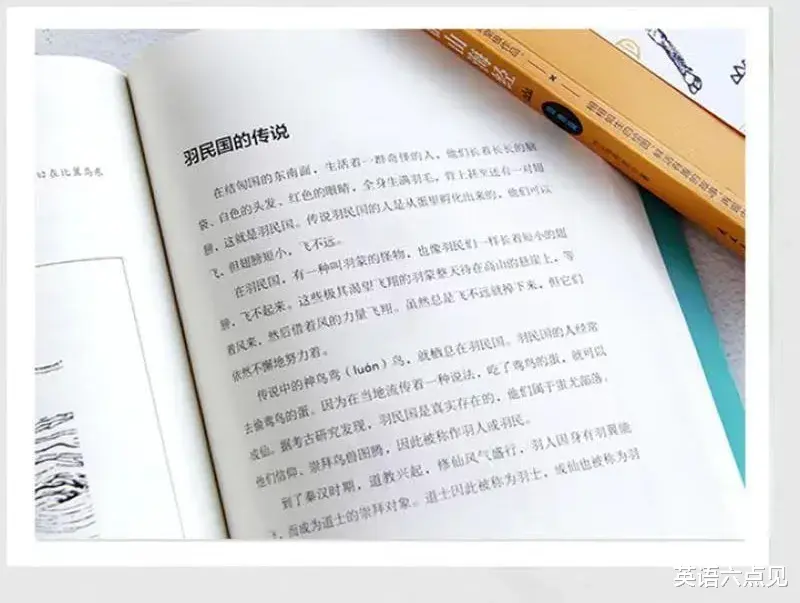 幻在比翼鸟东
羽民国的传说
在结匈国的东南面，生活着一群奇怪的人，他们长着长长的脑
袋、白色的头发、红色的眼睛，全身生满羽毛，背上甚至还有一对翅
膀，这就是羽民国。传说羽民国的人是从蛋里孵化出来的，他们可以
飞，但翅膀短小，飞不远。
在羽民国，有一种叫羽蒙的怪物，也像羽民们一样长着短小的翅
膀，飞不起来。这些极其渴望飞翔的羽蒙整天待在高山的悬崖上，等
着风来，然后借着风的力量飞翔。虽然总是飞不远就掉下来，但它们
依然不懈地努力着。
传说中的神鸟鸾（luán）鸟，就栖息在羽民国。羽民国的人经常
去偷鸾鸟的蛋。因为在当地流传着一种说法，吃了鸾鸟的蛋，就可以
成仙。据考古研究发现，羽民国是真实存在的，他们属于蚩尤部落。
他们信仰、崇拜鸟兽图腾，因此被称作羽人或羽民。
到了秦汉时期，道教兴起，修仙风气盛行，羽人因身有羽翼能
飞，而成为道士的崇拜对象。道士因此被称为羽士，成仙也被称为羽
山海经
栩栩如生的绘图
英语六点见